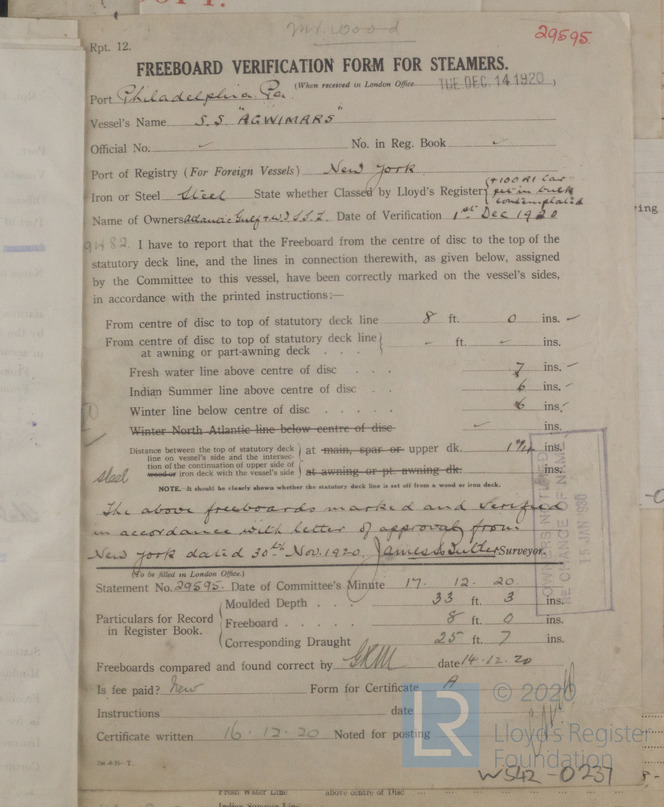 Mr. Wood
29595.
Rpt. 12.
FREEBOARD VERIFICATION FORM FOR STEAMERS.
(When received in London Office TUE. DEC. 14 1920 )
Port Philadelphia Pa
Vessel's Name S.S. "AGWIMARS"
Official No. No. in Reg. Book
Port of Registry (For Foreign Vessels) New York
Iron or Steel Steel State whether Classed by Lloyd's Register +100A1 Car
pet in bulk
contemplated
Name of Owners Atlantic Gulf & W.I. S.S.L. Date of Verification 1st Dec 1920
9482. I have to report that the Freeboard from the centre of disc to the top of the
statutory deck line, and the lines in connection therewith, as given below, assigned
by the Committee to this vessel, have been correctly marked on the vessel's sides,
in accordance with the printed instructions:—
From centre of disc to top of statutory deck line 8 ft. 0 ins.
From centre of disc to top of statutory deck line
at awning or part-awning deck . . . - ft. - ins.
Fresh water line above centre of disc . . . 7 ins.
Indian Summer line above centre of disc . . 6 ins.
Winter line below centre of disc . . . . . 6 ins.
Winter North Atlantic line below centre of disc ins.
Distance between the top of statutory deck
line on vessel's side and the intersec-
tion of the continuation of upper side of
wood or iron deck with the vessel's side
steel
at main, spar or upper dk. ins.
at awning or pt. awning dk. ins.
NOTE.—It should be clearly shown whether the statutory deck line is set off from a wood or iron deck.
The above freeboards marked and verified
in accordance with letter of approval from
New York dated 30th Nov. 1920. James S Butler Surveyor.
OWNERS NOTIFIED
RE CHANGE OF NAME
15 JAN 1930
(To be filled in London Office.)
Statement No. 29595. Date of Committee's Minute 17. 12. 20.
Particulars for Record
in Register Book.
Moulded Depth . . . 33 ft. 3 ins.
Freeboard . . . . . 8 ft. 0 ins.
Corresponding Draught 25 ft. 7 ins.
Freeboards compared and found correct by date 14.12.20
Is fee paid? New Form for Certificate A
Instructions date
Certificate written 16.12.20 Noted for posting
© 2020
LR
Lloyd's Register
Foundation
W542-0237
Fresh Water Line above centre of Disc
Indian Summer Line